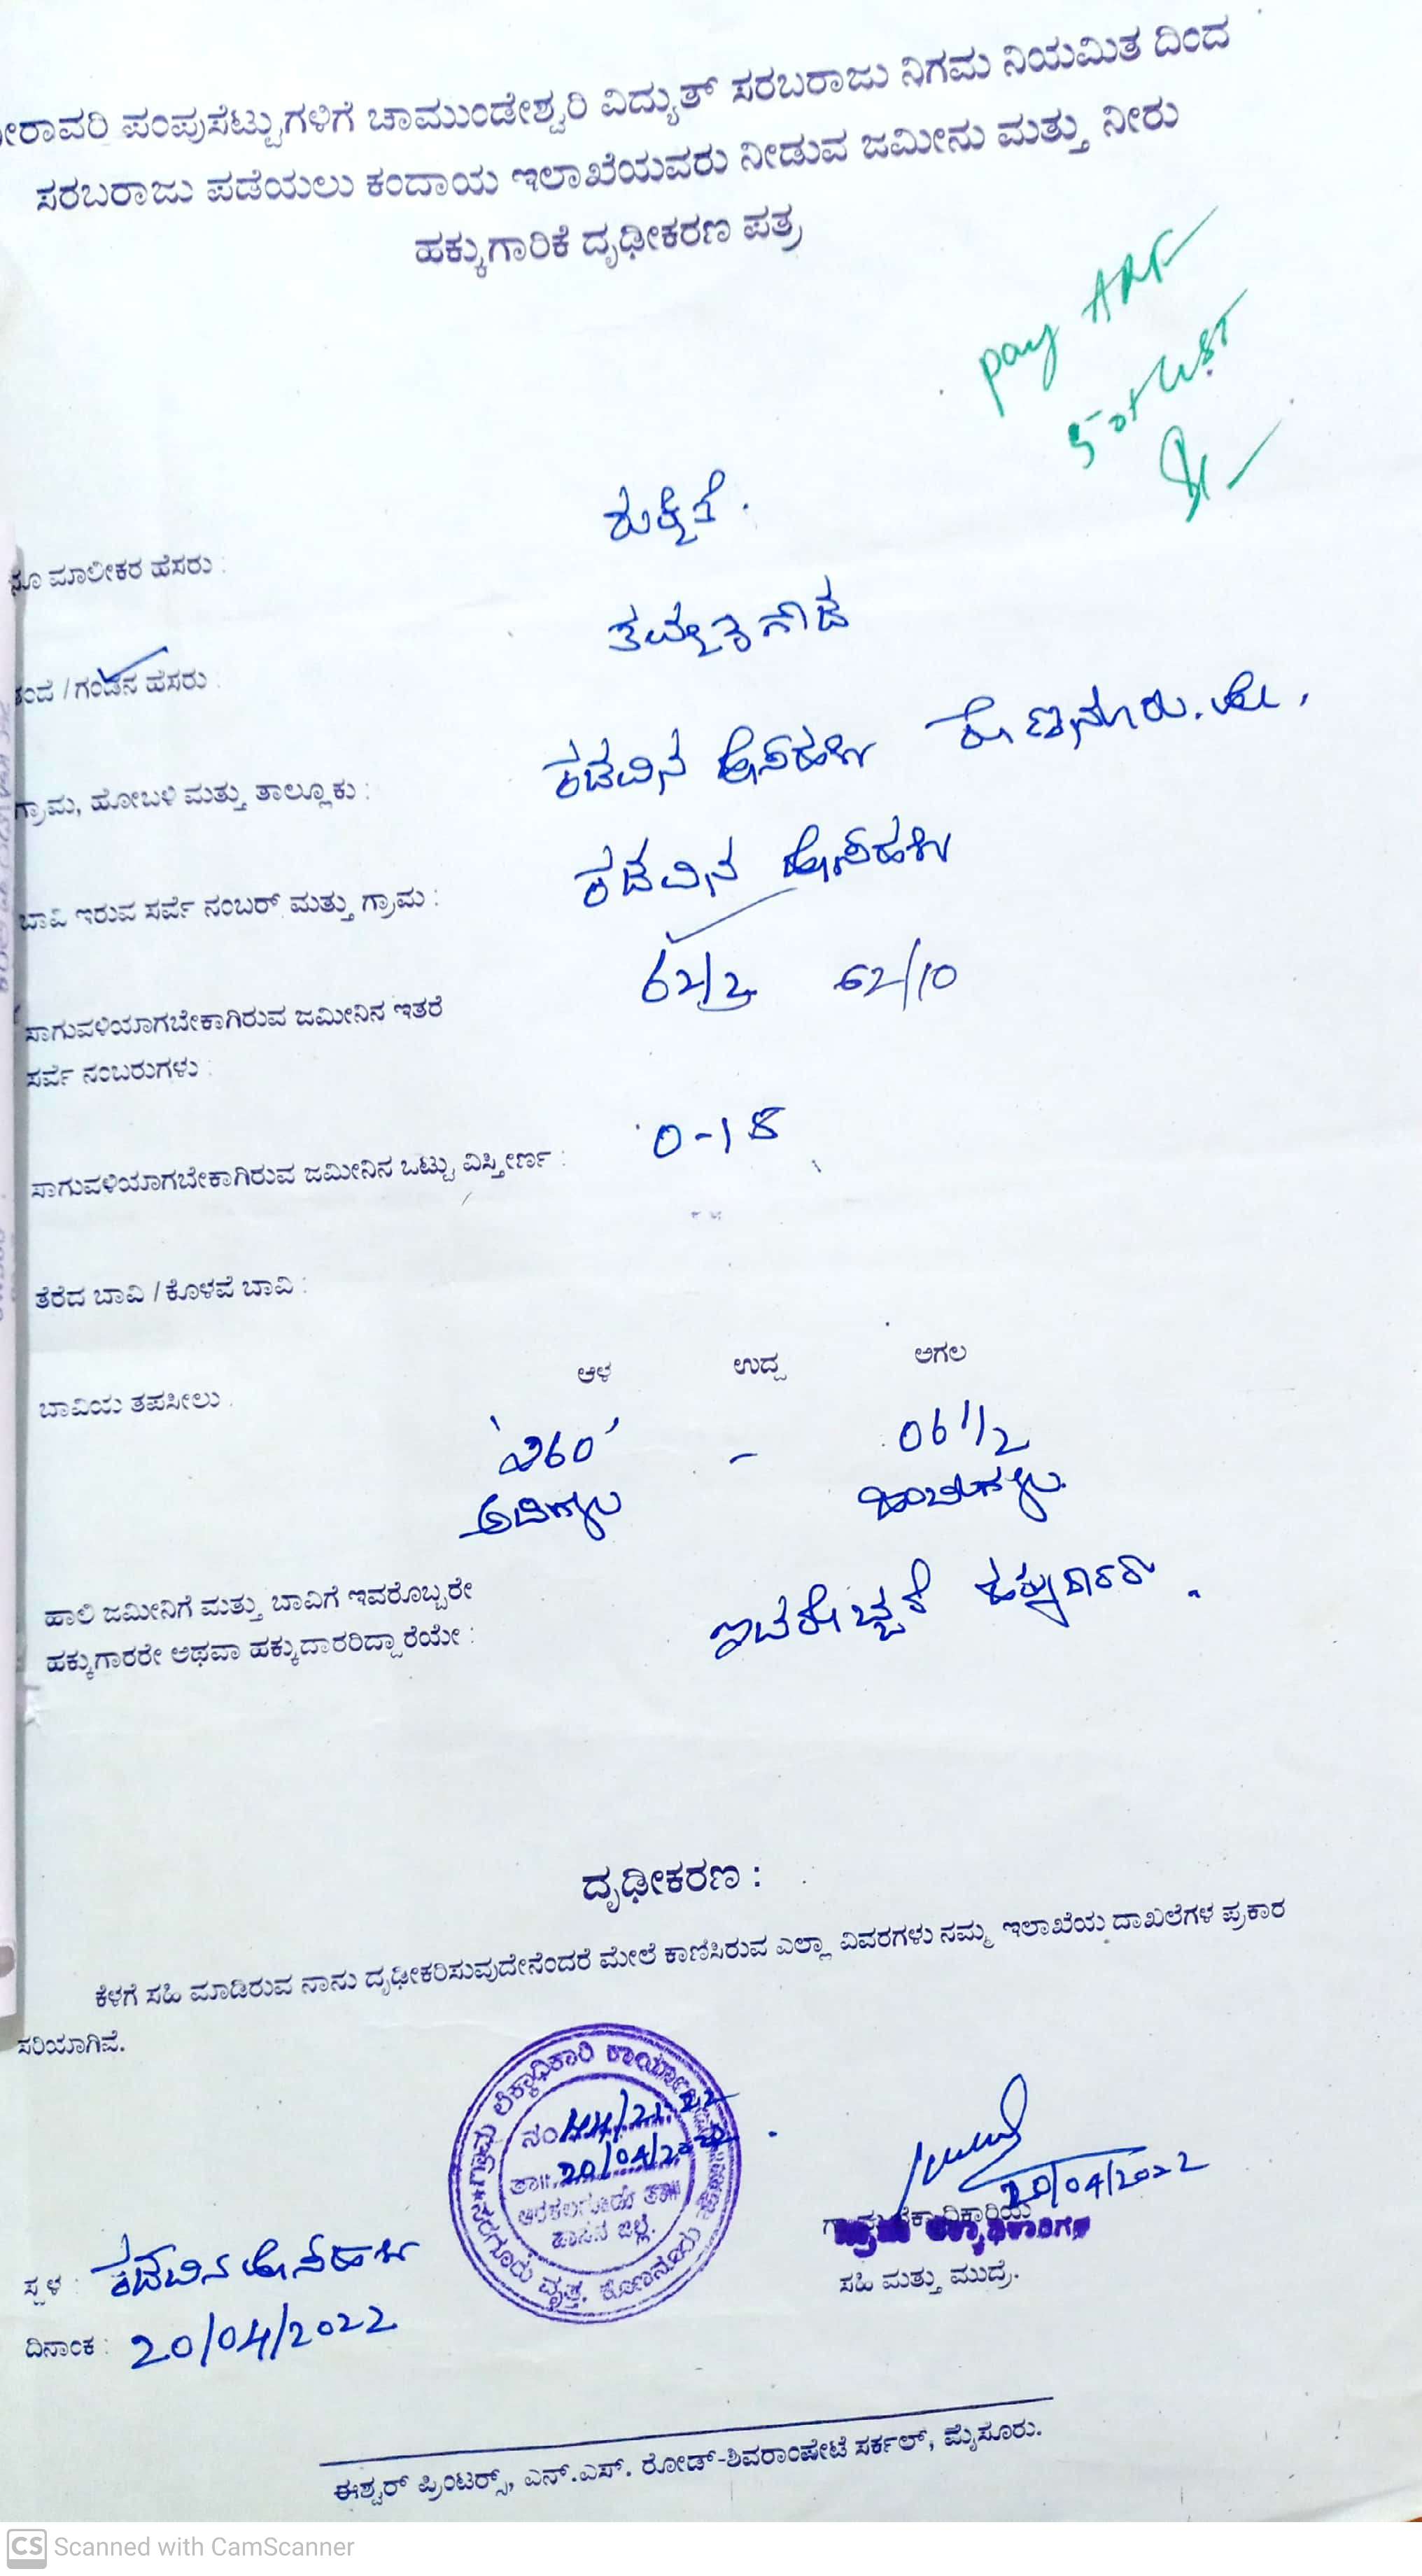 ನೀರಾವರಿ ಪಂಪುಸೆಟ್ಟುಗಳಿಗೆ ಚಾಮುಂಡೇಶ್ವರಿ ವಿದ್ಯುತ್ ಸರಬರಾಜು ನಿಗಮ ನಿಯಮಿತ ದಿಂದ
ಸರಬರಾಜು ಪಡೆಯಲು ಕಂದಾಯ ಇಲಾಖೆಯವರು ನೀಡುವ ಜಮೀನು ಮತ್ತು ನೀರು
ಹಕ್ಕುಗಾರಿಕೆ ದೃಢೀಕರಣ ಪತ್ರ
pay ARF
50+GST
ಮಾಲೀಕರ ಹೆಸರು :
ತಂದೆ / ಗಂಡನ ಹೆಸರು :
ಗ್ರಾಮ, ಹೋಬಳಿ ಮತ್ತು ತಾಲ್ಲೂಕು : ಕಡವಿನ ಹೊಸಹಳ್ಳಿ ಕೊಣನೂರು. ಹೋ.
ಬಾವಿ ಇರುವ ಸರ್ವೆ ನಂಬರ್ ಮತ್ತು ಗ್ರಾಮ : ಕಡವಿನ ಹೊಸಹಳ್ಳಿ
62/2 62/10
ಸಾಗುವಳಿಯಾಗಬೇಕಾಗಿರುವ ಜಮೀನಿನ ಇತರೆ
ಸರ್ವೆ ನಂಬರುಗಳು :
ಸಾಗುವಳಿಯಾಗಬೇಕಾಗಿರುವ ಜಮೀನಿನ ಒಟ್ಟು ವಿಸ್ತೀರ್ಣ : 0-18
ತೆರೆದ ಬಾವಿ / ಕೊಳವೆ ಬಾವಿ :
ಬಾವಿಯ ತಪಸೀಲು : ಆಳ ಉದ್ದ ಅಗಲ
260 - 06 1/2
ಅಡಿಗಳು ಇಂಚುಗಳು.
ಹಾಲಿ ಜಮೀನಿಗೆ ಮತ್ತು ಬಾವಿಗೆ ಇವರೊಬ್ಬರೇ
ಹಕ್ಕುಗಾರರೇ ಅಥವಾ ಹಕ್ಕುದಾರರಿದ್ದಾರೆಯೇ : ಇವರೊಬ್ಬರೆ ಹಕ್ಕುದಾರರು.
ದೃಢೀಕರಣ :
ಕೆಳಗೆ ಸಹಿ ಮಾಡಿರುವ ನಾನು ದೃಢೀಕರಿಸುವುದೇನೆಂದರೆ ಮೇಲೆ ಕಾಣಿಸಿರುವ ಎಲ್ಲಾ ವಿವರಗಳು ನಮ್ಮ ಇಲಾಖೆಯ ದಾಖಲೆಗಳ ಪ್ರಕಾರ
ಸರಿಯಾಗಿವೆ.
ಗ್ರಾಮ ಲೆಕ್ಕಾಧಿಕಾರಿ
ನಂ 21-22
ತಾ॥ 20/04/2022
ಅರಕಲಗೂಡು ತಾ॥
ಹಾಸನ ಜಿಲ್ಲೆ.
ವೃತ್ತ. ಕೊಣನೂರು
20/04/2022
ಗ್ರಾಮ ಲೆಕ್ಕಾಧಿಕಾರಿಯ
ಸಹಿ ಮತ್ತು ಮುದ್ರೆ.
ಸ್ಥಳ : ಕಡವಿನ ಹೊಸಹಳ್ಳಿ
ದಿನಾಂಕ : 20/04/2022
ಈಶ್ವರ್ ಪ್ರಿಂಟರ್ಸ್, ಎನ್.ಎಸ್. ರೋಡ್-ಶಿವರಾಂಪೇಟೆ ಸರ್ಕಲ್, ಮೈಸೂರು.
CS Scanned with CamScanner